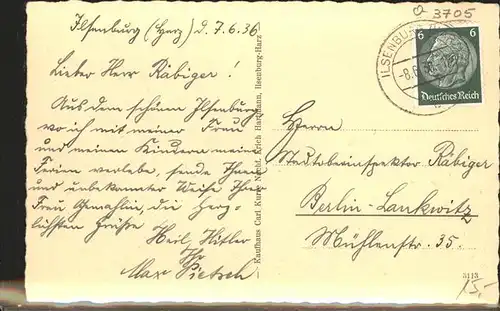 Ilsenburg (Harz) d. 7.6.36
Lieber Herr Räbiger!
Aus dem schönen Ilsenburg,
wo ich mit meiner Frau
und meinen Kindern meine
Ferien verlebe, sende Ihnen
und unbekannter Weise Ihrer
Frau Gemahlin, die herz-
lichsten Grüße
Heil Hitler
Ihr
Max Pietsch
Kaufhaus Carl Kurze Nachf. Erich Hartmann, Ilsenburg-Harz
3705
ILSENBURG
-8.6
6 6
Deutsches Reich
Herrn
Räbiger
Berlin-Lankwitz
Mühlenstr. 35.
3113
15,-